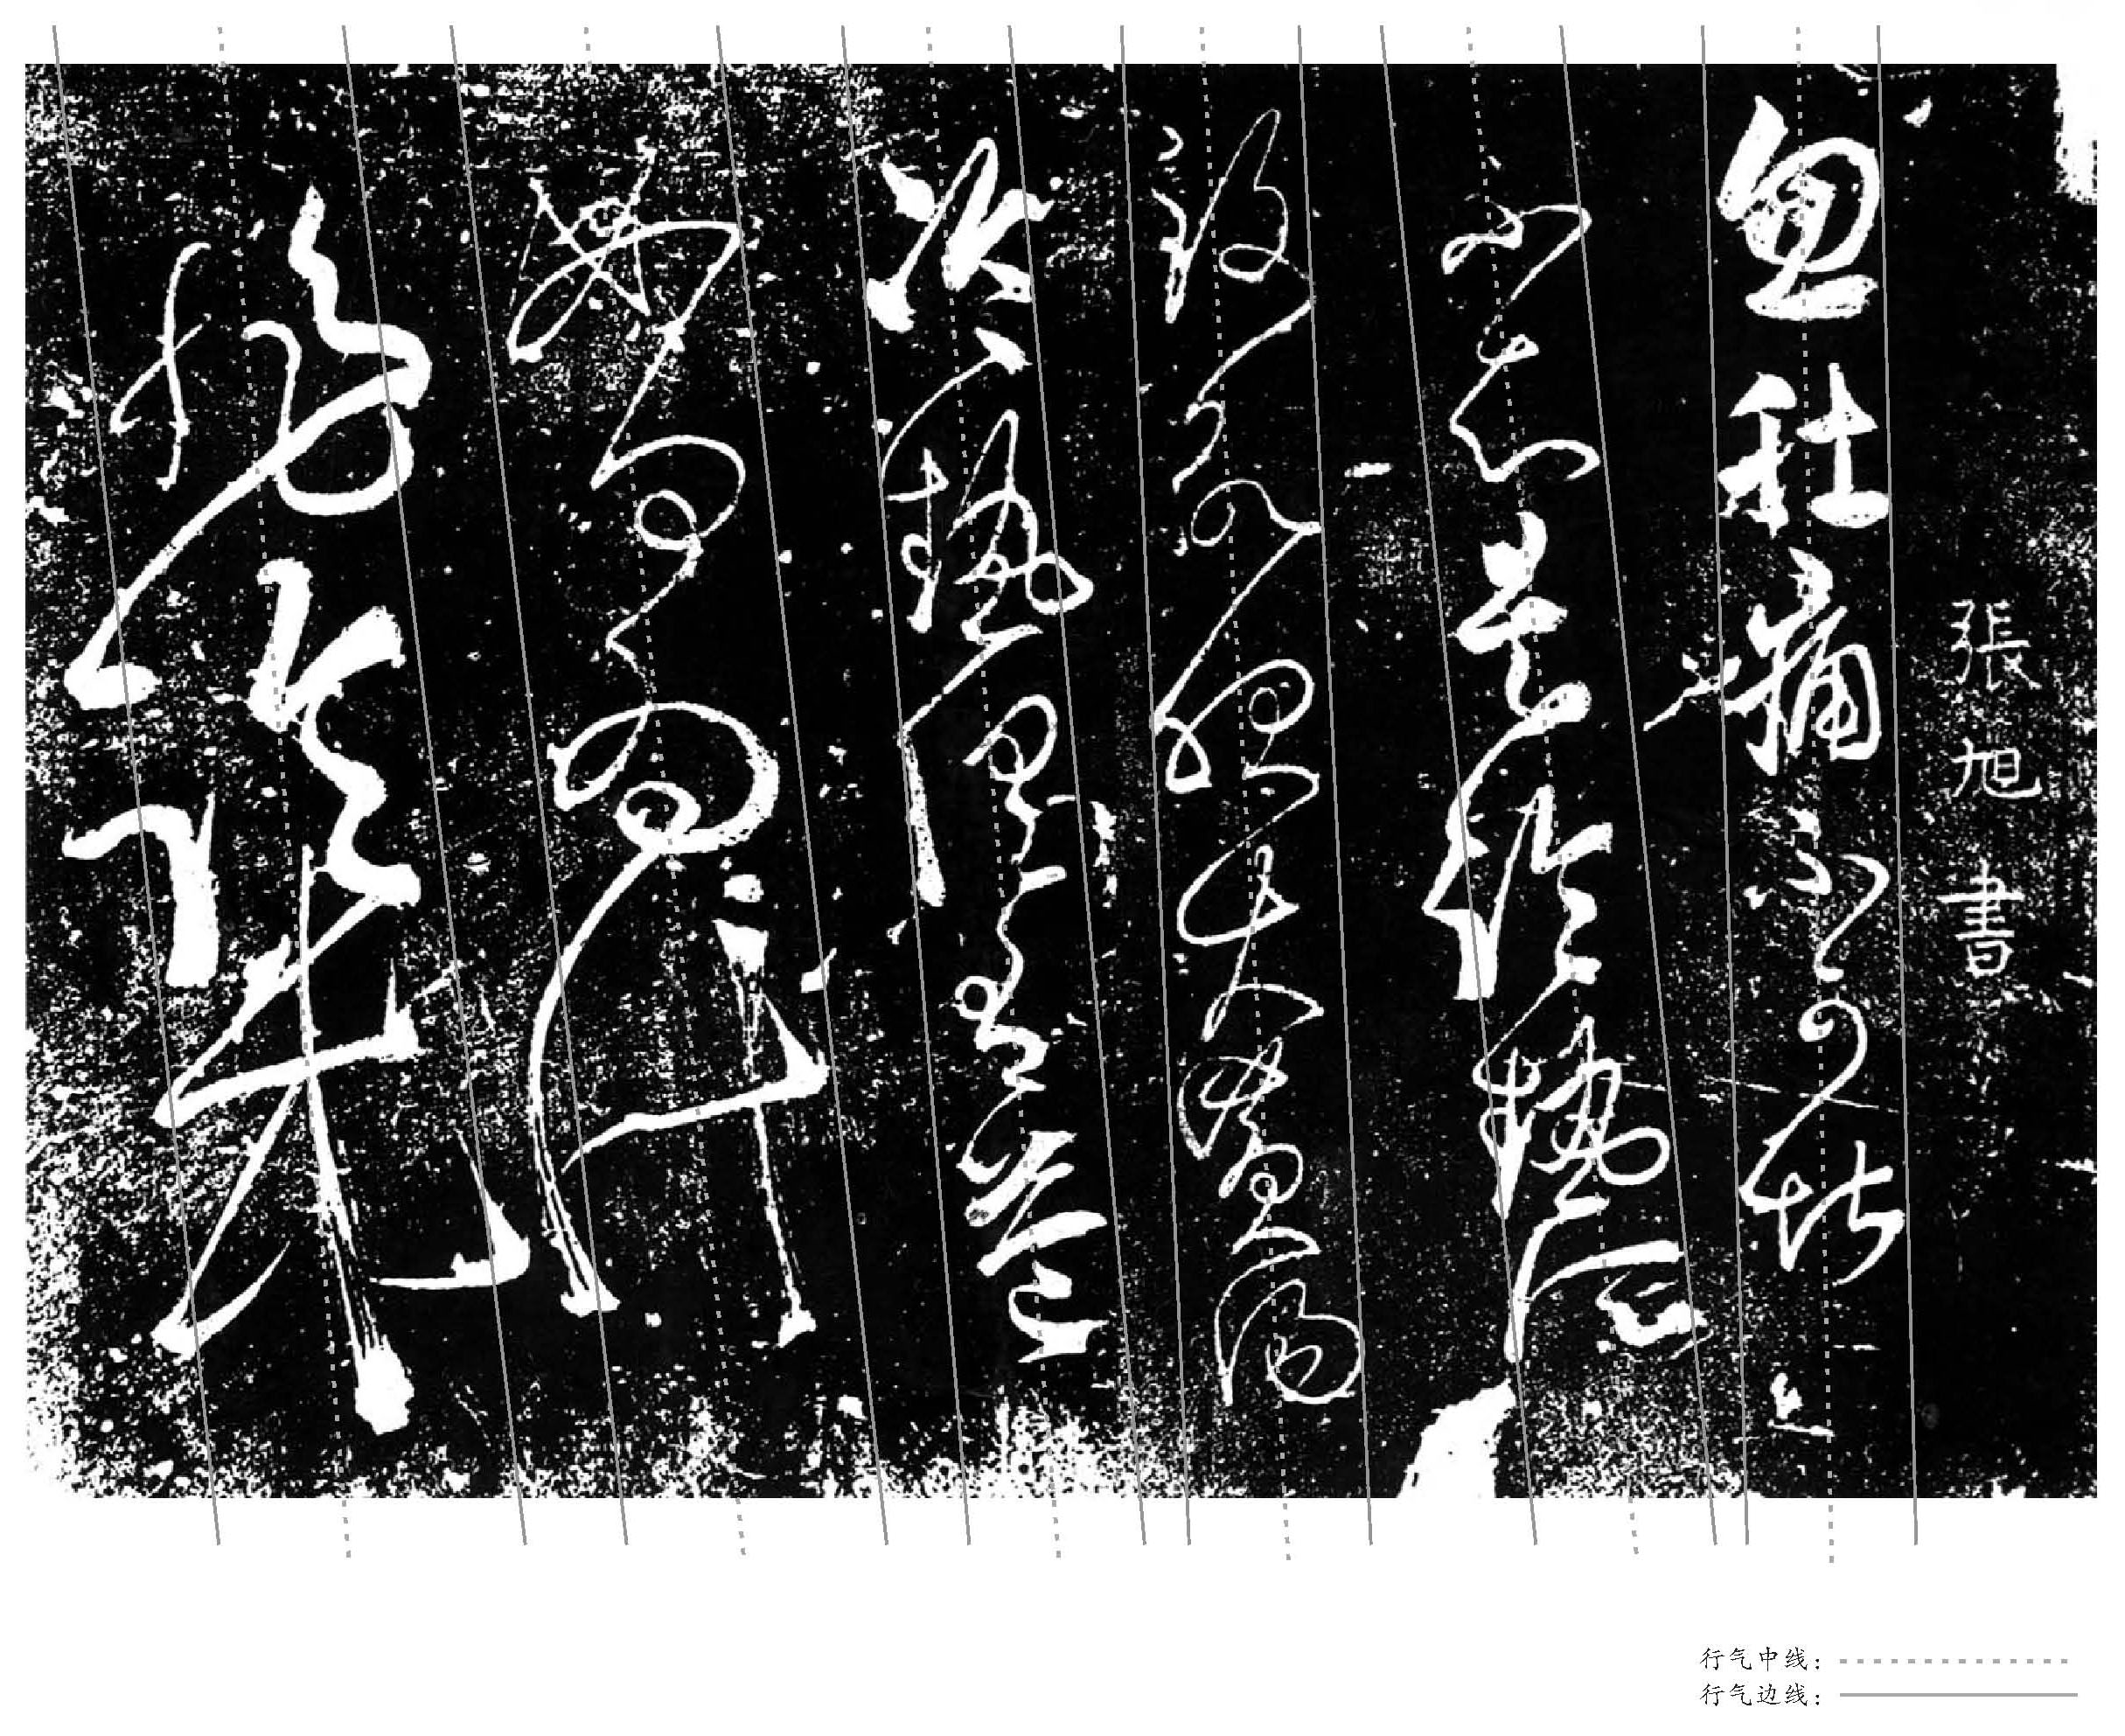 張旭書
忽肚痛不可堪
不知是冷熱所
致欲服大黃湯
冷熱俱有益
如何為計
非臨床
行气中线：
行气边线：